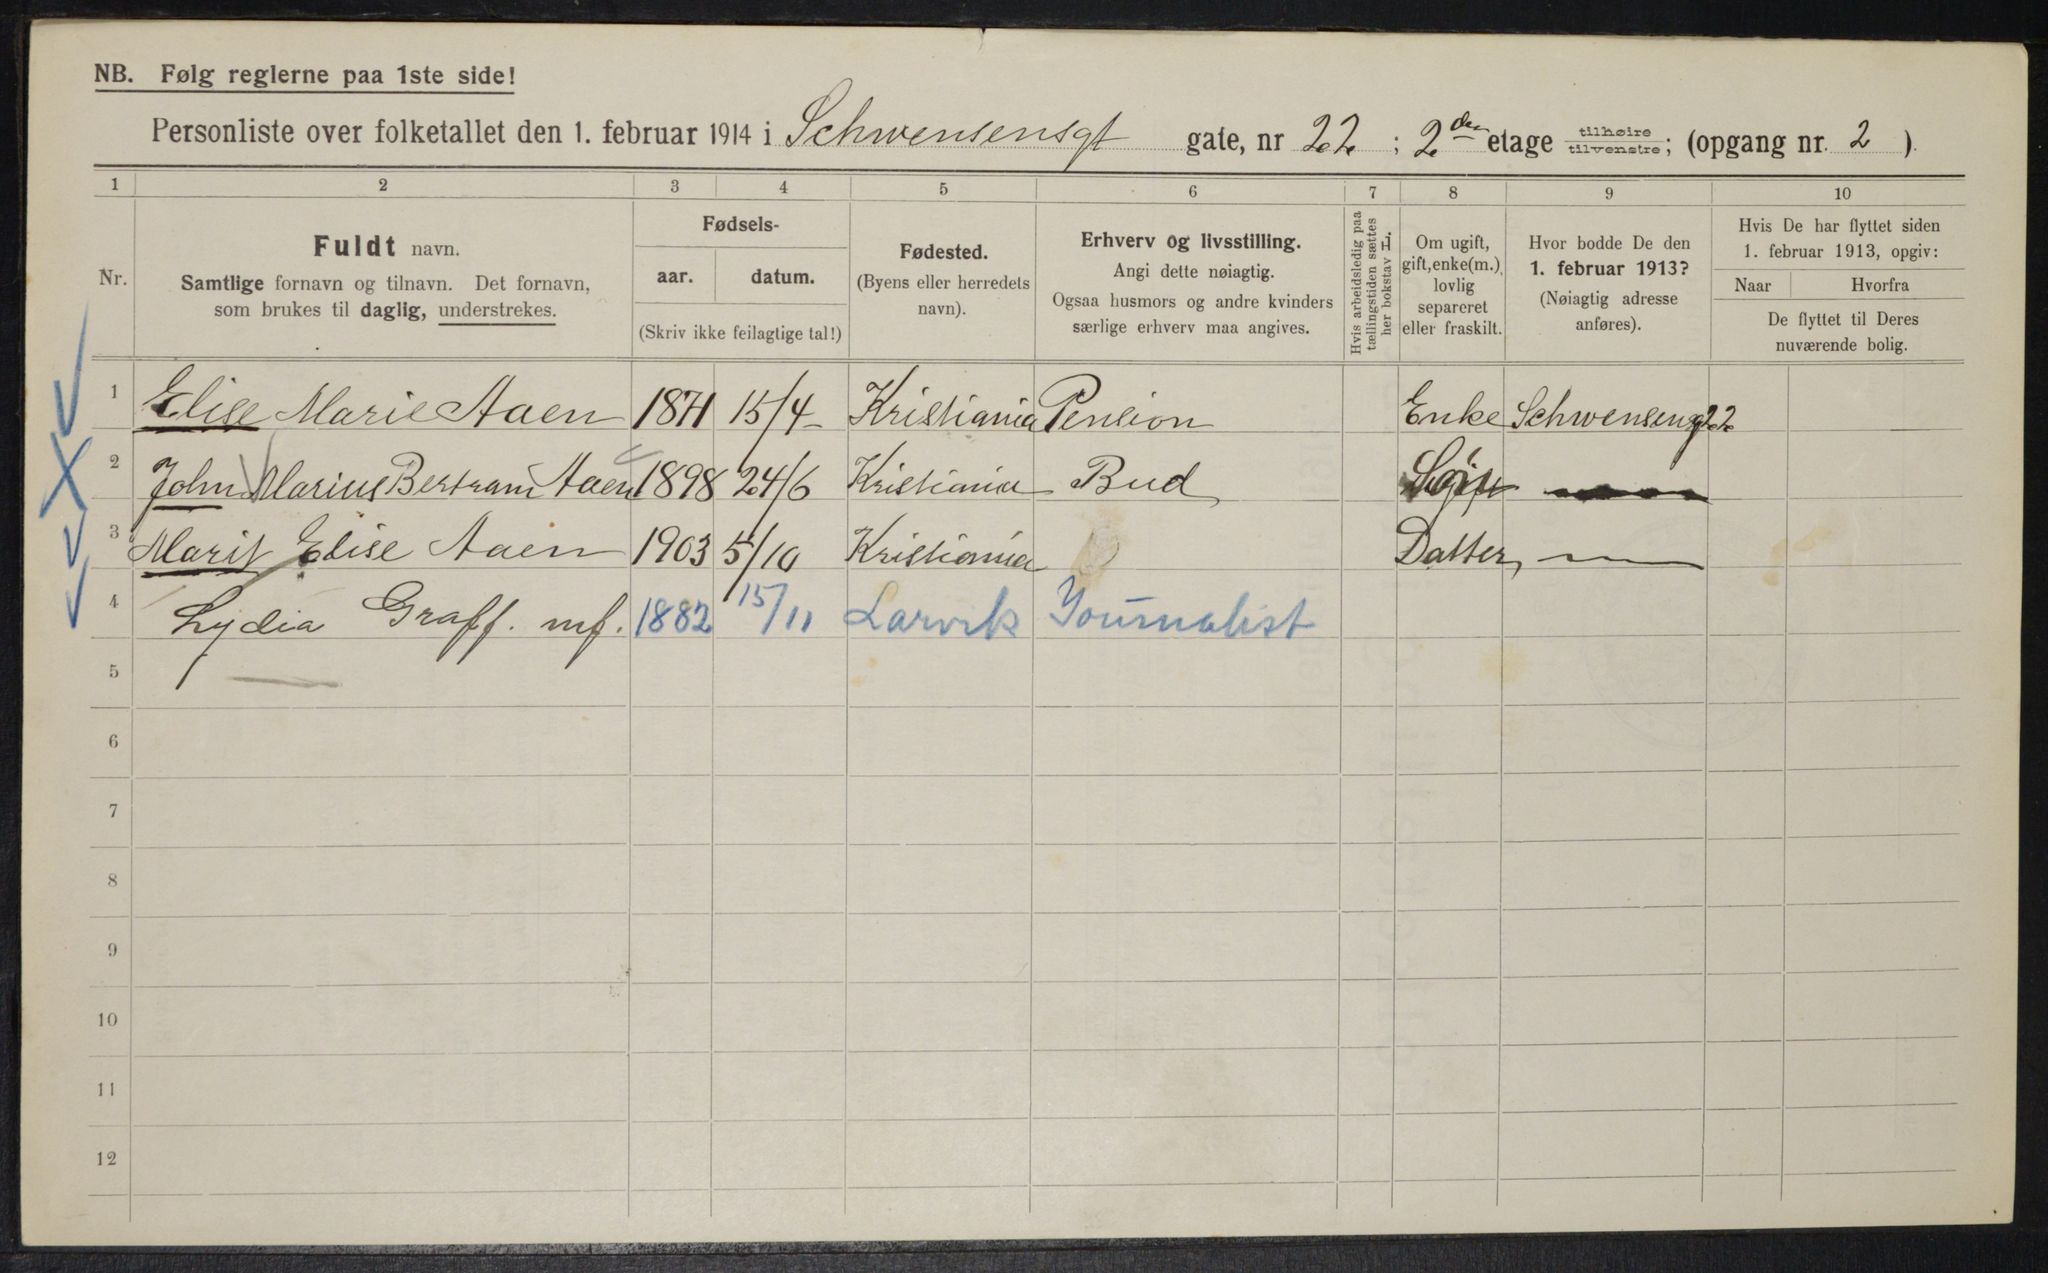 NB. Følg reglerne paa 1ste side!
Personliste over folketallet den 1. februar 1914 i Schwensensgt gate, nr 22 ; 2den etage tilhøire tilvenstre; (opgang nr. 2 ).
1 2 3 4 5 6 7 8 9 10
Nr.
Fuldt navn.
Samtlige fornavn og tilnavn. Det fornavn,
som brukes til daglig, understrekes.
Fødsels-
aar. datum.
(Skriv ikke feilagtige tal!)
Fødested.
(Byens eller herredets
navn).
Erhverv og livsstilling.
Angi dette nøiagtig.
Ogsaa husmors og andre kvinders
særlige erhverv maa angives.
Hvis arbeidsledig paa
tællingstiden sættes
her bokstav L.
Om ugift,
gift, enke(m.),
lovlig
separeret
eller fraskilt.
Hvor bodde De den
1. februar 1913?
(Nøiagtig adresse
anføres).
Hvis De har flyttet siden
1. februar 1913, opgiv:
Naar Hvorfra
De flyttet til Deres
nuværende bolig.
1 Elise Marie Aaen 1871 15/4 Kristiania Pension Enke Schwenseng 22
2 John Marius Bertram Aaen 1898 24/6 Kristiania Bud
3 Marit Elise Aaen 1903 5/10 Kristiania Datter
4 Lydia Graff. mf. 1882 15/11 Larvik Journalist
5
6
7
8
9
10
11
12